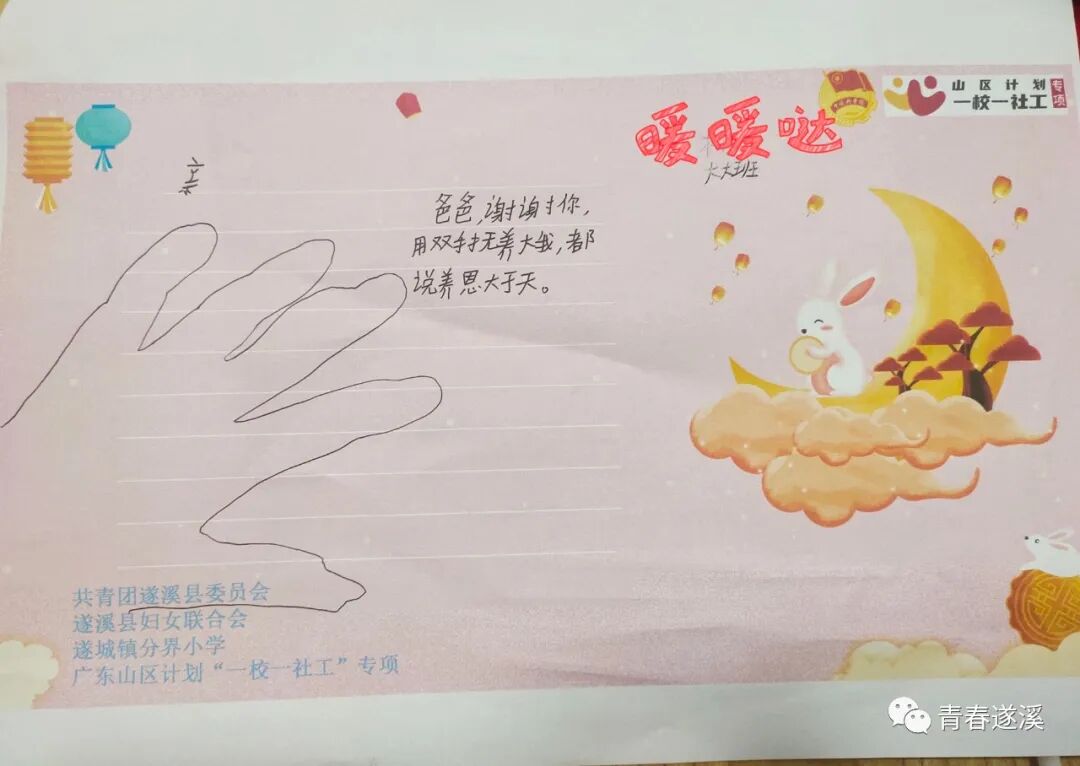 山区计划
一校一社工
专项
暖暖哒
大大班
亲
爸爸,谢谢你,
用双手抚养大我,都
说养恩大于天。
共青团遂溪县委员会
遂溪县妇女联合会
遂城镇分界小学
广东山区计划“一校一社工”专项
青春遂溪